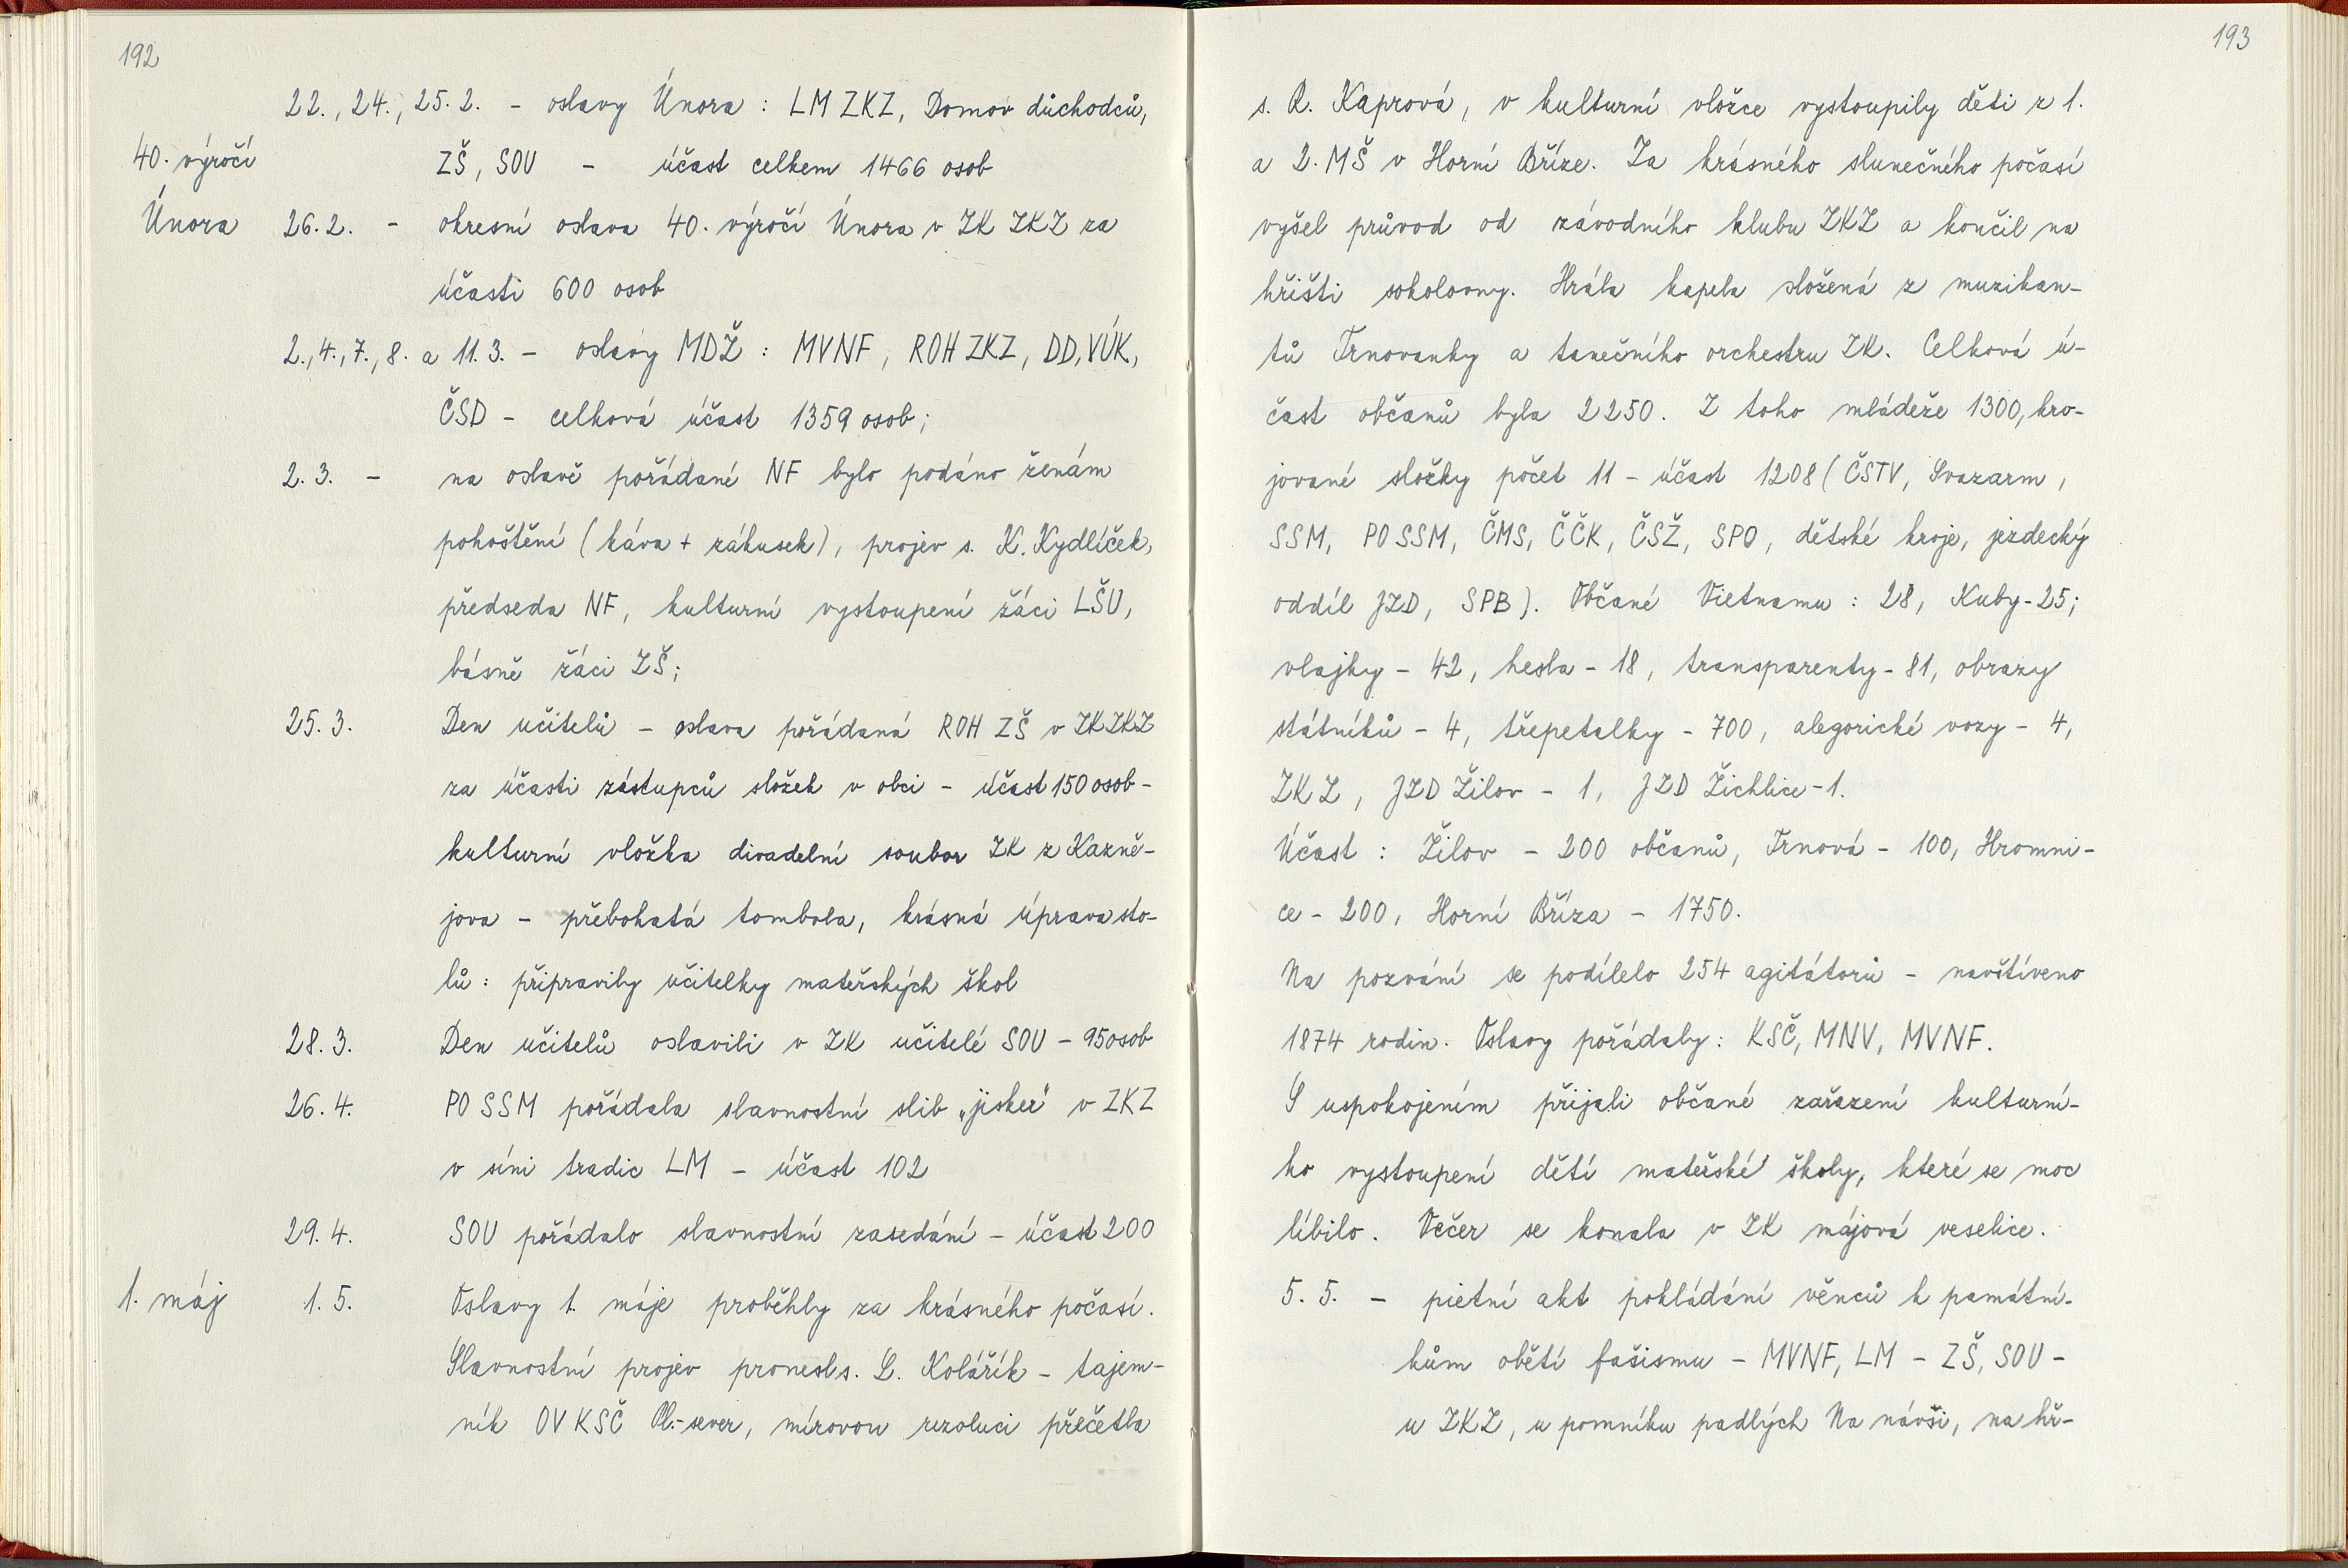 192
22., 24., 25. 2. - oslavy Února : LM ZKZ, Domov důchodců,
40. výročí ZŠ, SOU - účast celkem 1466 osob
Února 26. 2. - okresní oslava 40. výročí Února v ZK ZKZ za
účasti 600 osob
2., 4., 7., 8. a 11. 3. - oslavy MDŽ : MVNF, ROH ZKZ, DD, VÚK,
ČSD - celková účast 1359 osob;
2. 3. - na oslavě pořádané NF bylo podáno ženám
pohoštění (káva + zákusek), projev s. K. Kydlíček,
předseda NF, kulturní vystoupení žáci LŠU,
básně žáci ZŠ;
25. 3. Den učitelů - oslava pořádaná ROH ZŠ v ZK ZKZ
za účasti zástupců složek v obci - účast 150 osob -
kulturní vložka divadelní soubor ZK z Kazně-
jova - přebohatá tombola, krásná úprava sto-
lů : připravily učitelky mateřských škol
28. 3. Den učitelů oslavili v ZK učitelé SOU - 95 osob
26. 4. PO SSM pořádala slavnostní slib „jisker“ v ZKZ
v síni tradic LM - účast 102
29. 4. SOU pořádalo slavnostní zasedání - účast 200
1. máj 1. 5. Oslavy 1. máje proběhly za krásného počasí.
Slavnostní projev pronesl s. L. Kolářík - tajem-
ník OV KSČ Pl.-sever, mírovou rezoluci přečetla
193
s. R. Kaprová, v kulturní vložce vystoupily děti z 1.
a 2. MŠ v Horní Bříze. Za krásného slunečného počasí
vyšel průvod od závodního klubu ZKZ a končil na
hřišti sokolovny. Hrála kapela složená z muzikan-
tů Trnovanky a tanečního orchestru ZK. Celková ú-
čast občanů byla 2250. Z toho mládeže 1300, kro-
jované složky počet 11 - účast 1208 (ČSTV, Svazarm,
SSM, PO SSM, ČMS, ČČK, ČSŽ, SPO, dětské kroje, jezdecký
oddíl JZD, SPB). Občané Vietnamu : 28, Kuby - 25;
vlajky - 42, hesla - 18, transparenty - 81, obrazy
státníků - 4, třepetalky - 700, alegorické vozy - 4,
ZKZ, JZD Žilov - 1, JZD Žichlice - 1.
Účast : Žilov - 200 občanů, Trnová - 100, Hromni-
ce - 200, Horní Bříza - 1750.
Na pozvání se podílelo 254 agitátorů - navštíveno
1874 rodin. Oslavy pořádaly : KSČ, MNV, MVNF.
S uspokojením přijali občané zařazení kulturní-
ho vystoupení dětí mateřské školy, které se moc
líbilo. Večer se konala v ZK májová veselice.
5. 5. - pietní akt pokládání věnců k památní-
kům obětí fašismu - MVNF, LM - ZŠ, SOU -
u ZKZ, u pomníku padlých Na návsi, na hř-